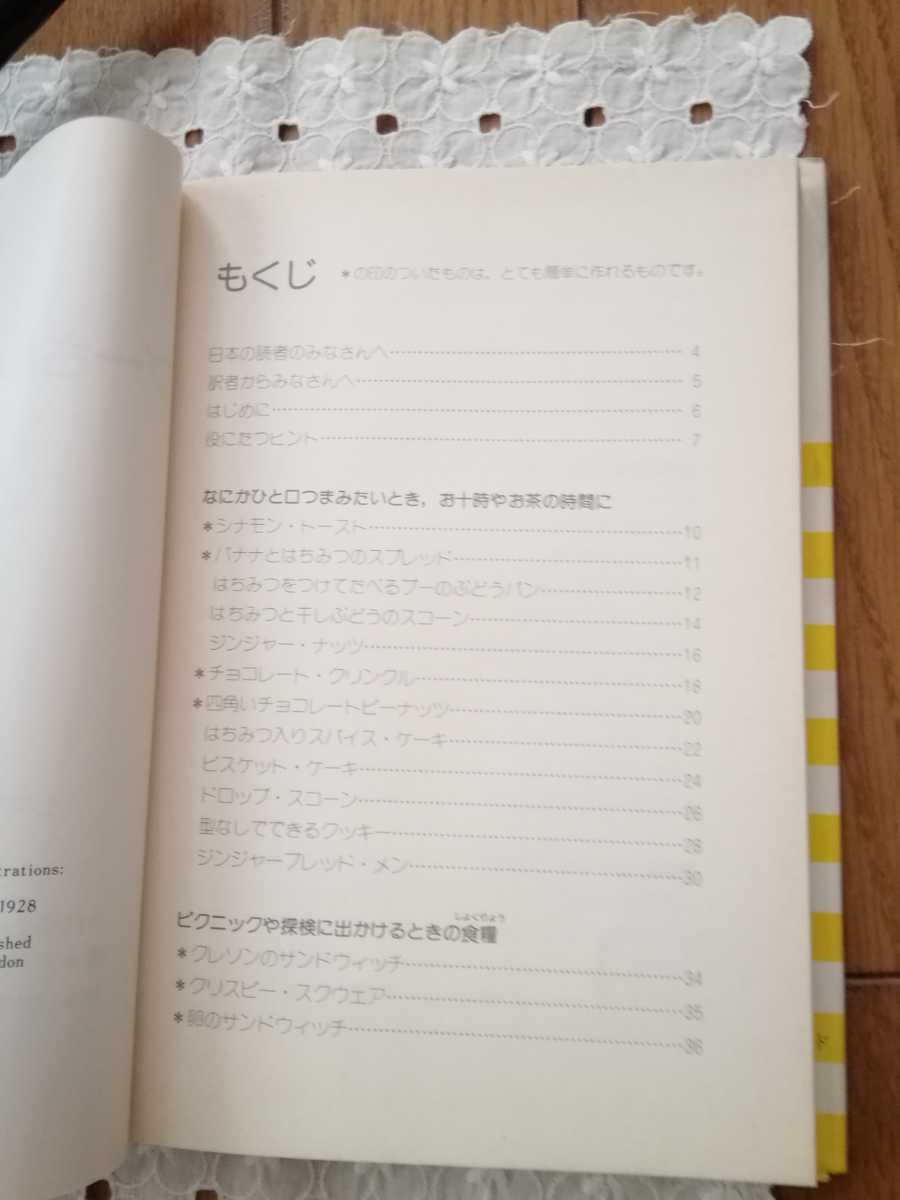 trations:
1928
shed
don
もくじ *の印のついたものは、とても簡単に作れるものです。
日本の読者のみなさんへ…………4
訳者からみなさんへ…………5
はじめに…………6
役にたつヒント…………7
なにかひと口つまみたいとき，お十時やお茶の時間に
*シナモン・トースト…………10
*バナナとはちみつのスプレッド…………11
はちみつをつけてたべるプーのぶどうパン…………12
はちみつと干しぶどうのスコーン…………14
ジンジャー・ナッツ…………16
*チョコレート・クリンクル…………18
*四角いチョコレートピーナッツ…………20
はちみつ入りスパイス・ケーキ…………22
ビスケット・ケーキ…………24
ドロップ・スコーン…………26
型なしでできるクッキー…………28
ジンジャーブレッド・メン…………30
しょくりょう
ピクニックや探検に出かけるときの食糧
*クレソンのサンドウィッチ…………34
*クリスピー・スクウェア…………35
*卵のサンドウィッチ…………36
ド